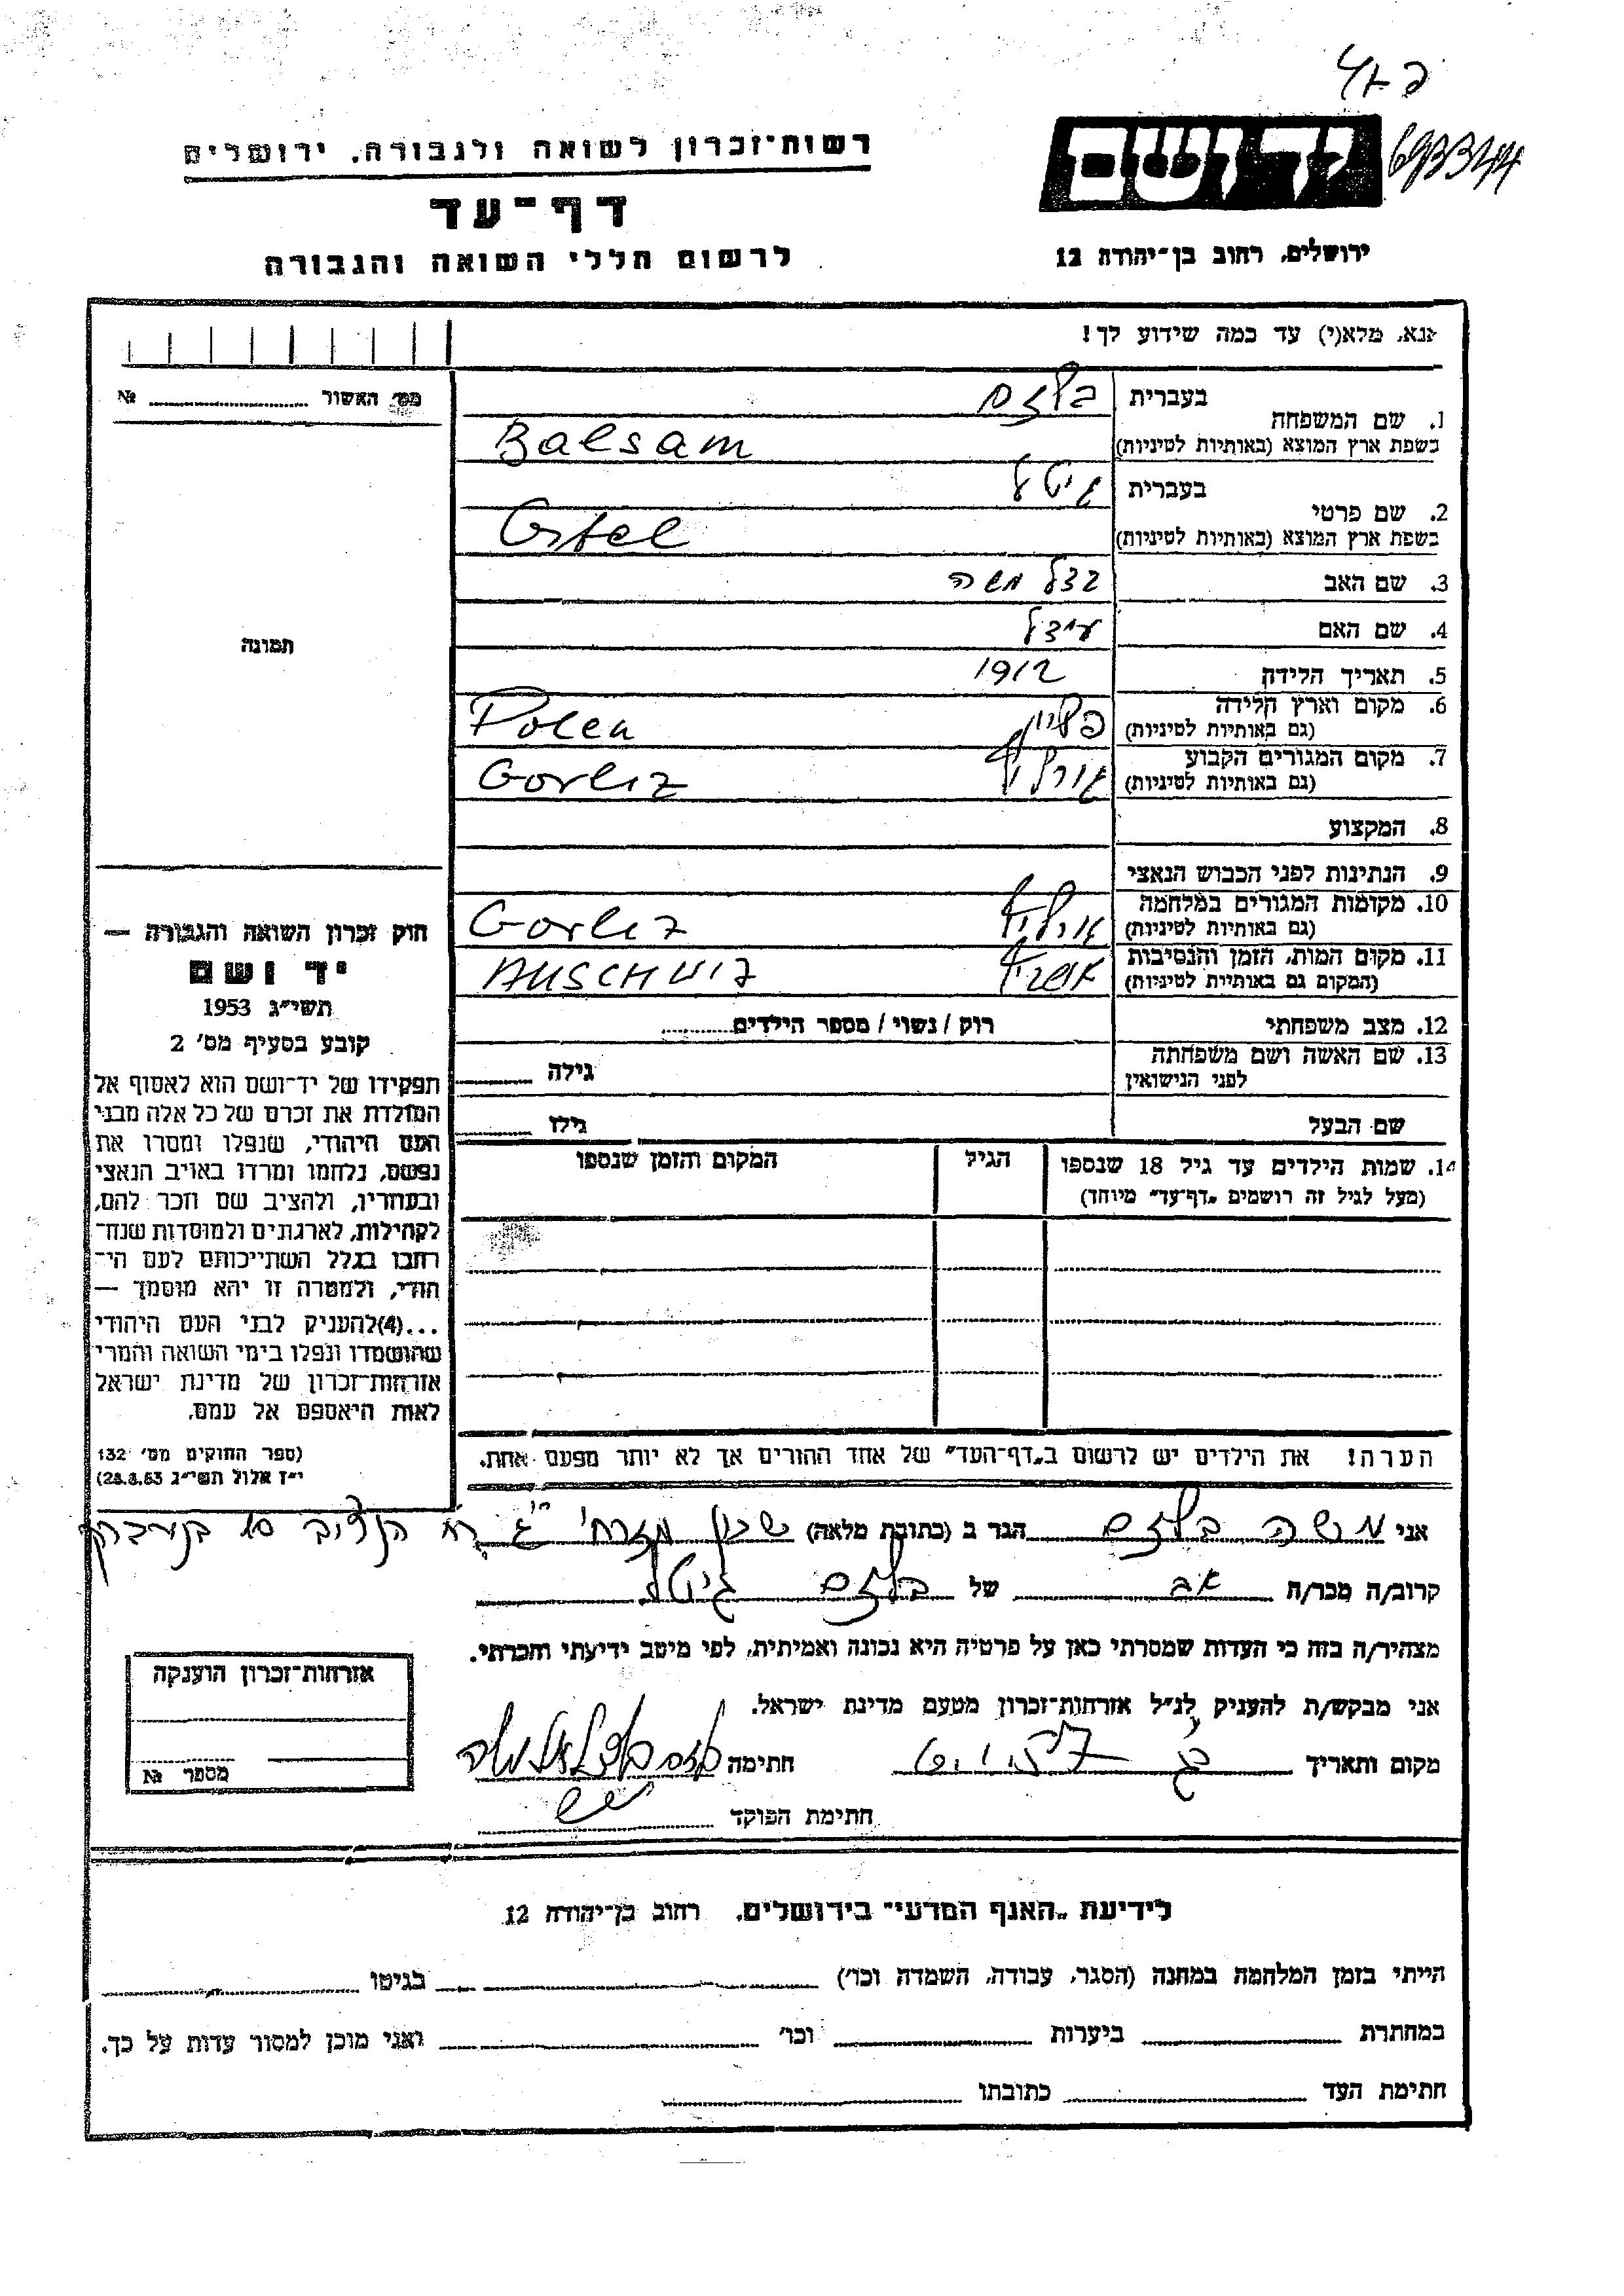 693344
רשות־זכרון לשואה ולגבורה. ירושלים
דף־עד
לרשום חללי השואה והגבורה
יד ושם
ירושלים, רחוב בן־יהודה 12
נא, מלא(י) עד כמה שידוע לך!
מס׳ האשור №
1. שם המשפחה
בעברית בלזם
בשפת ארץ המוצא (באותיות לטיניות) Balsam
2. שם פרטי
בעברית גיטל
בשפת ארץ המוצא (באותיות לטיניות) Gitel
3. שם האב משה
4. שם האם
5. תאריך הלידה 1912
6. מקום וארץ הלידה
(גם באותיות לטיניות) פולין Polen
7. מקום המגורים הקבוע
(גם באותיות לטיניות) גורליץ Gorliz
8. המקצוע
9. הנתינות לפני הכבוש הנאצי
10. מקומות המגורים במלחמה
(גם באותיות לטיניות) גורליץ Gorliz
11. מקום המות, הזמן והנסיבות
(המקום גם באותיות לטיניות) אושויץ AUSCHWIZ
12. מצב משפחתי רוק / נשוי / מספר הילדים
13. שם האשה ושם משפחתה
לפני הנישואין גילה
שם הבעל גילו
14. שמות הילדים עד גיל 18 שנספו הגיל המקום והזמן שנספו
(מעל לגיל זה רושמים „דף־עד״ מיוחד)
הערה! את הילדים יש לרשום ב„דף־העד״ של אחד ההורים אך לא יותר מפעם אחת.
תמונה
חוק זכרון השואה והגבורה —
יד ושם
תשי״ג 1953
קובע בסעיף מס׳ 2
תפקידו של יד־ושם הוא לאסוף אל
המולדת את זכרם של כל אלה מבני
העם היהודי, שנפלו ומסרו את
נפשם, נלחמו ומרדו באויב הנאצי
ובעוזריו, ולהציב שם וזכר להם,
לקהילות, לארגונים ולמוסדות שנח־
רבו בגלל השתייכותם לעם הי־
הודי, ולמטרה זו יהא מוסמך —
...(4)להעניק לבני העם היהודי
שהושמדו ונפלו בימי השואה והמרי
אזרחות־זכרון של מדינת ישראל
לאות היאספם אל עמם.
(ספר החוקים מס׳ 132
י״ז אלול תשי״ג 28.8.53)
אני משה בלזם הגר ב (כתובת מלאה) שכון מזרחי
קרוב/ה מכר/ה אב של בלזם גיטל
מצהיר/ה בזה כי העדות שמסרתי כאן על פרטיה היא נכונה ואמיתית, לפי מיטב ידיעתי והכרתי.
אני מבקש/ת להעניק לנ״ל אזרחות־זכרון מטעם מדינת ישראל.
מקום ותאריך חתימה
חתימת הפוקד
אזרחות־זכרון הוענקה
מספר №
לידיעת „האגף המדעי״ בירושלים. רחוב בן־יהודה 12
הייתי בזמן המלחמה במחנה (הסגר, עבודה, השמדה וכו׳) בגיטו
במחתרת ביערות וכו׳ ואני מוכן למסור עדות על כך.
חתימת העד כתובתו